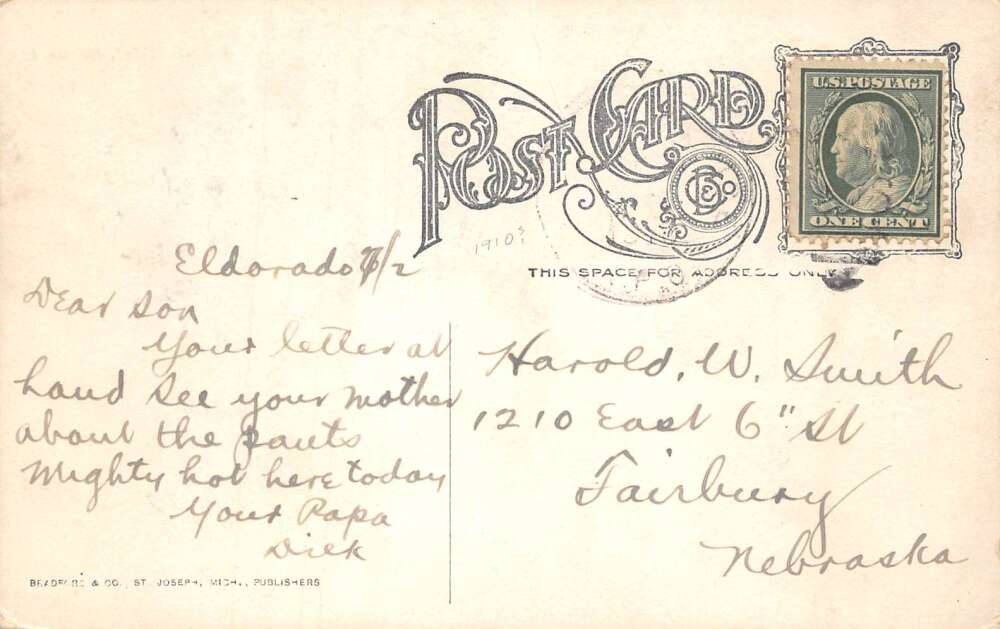 POST CARD
U.S. POSTAGE
ONE CENT
1910s?
THIS SPACE FOR ADDRESS ONLY
Eldorado 7/2
Dear Son
Your letter at
hand See your mother
about the pants
Mighty hot here today
Your Papa
Dick
Harold. W. Smith
1210 East 6" St
Fairbury
Nebraska
BRADFORD & CO., ST. JOSEPH, MICH., PUBLISHERS